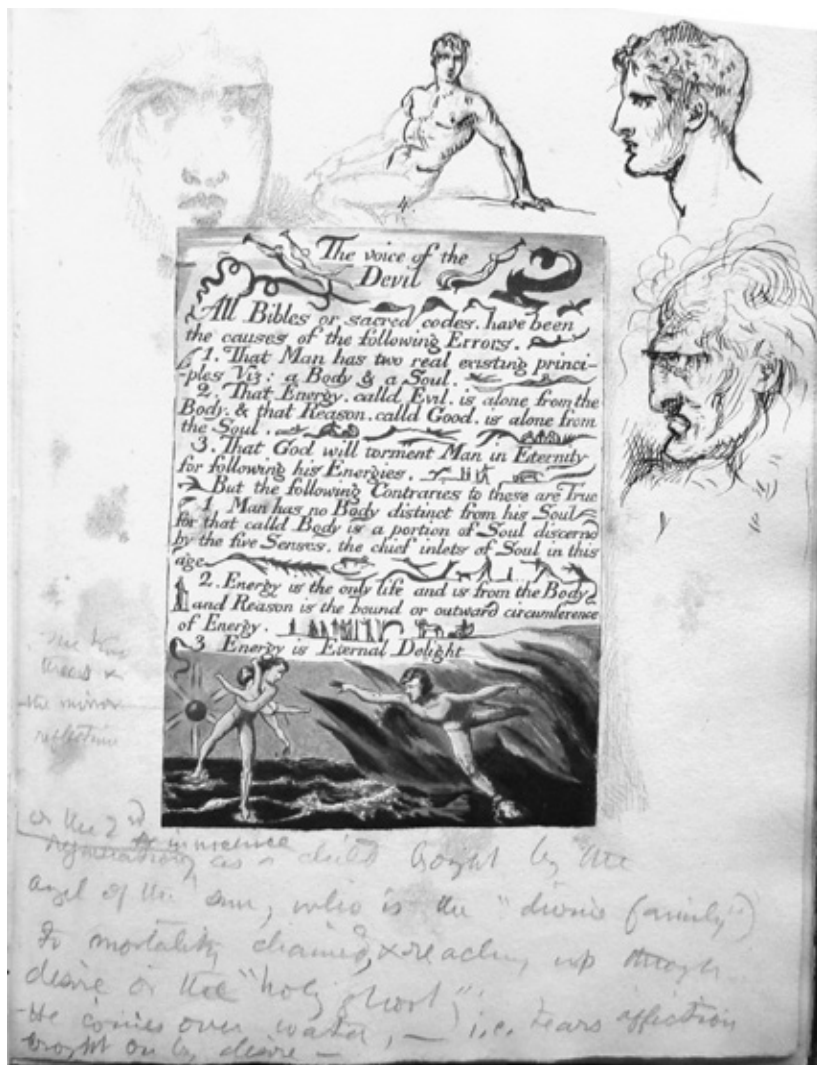 4.
The voice of the
Devil
All Bibles or sacred codes. have been
the causes of the following Errors.
1. That Man has two real existing princi-
-ples Viz: a Body & a Soul.
2. That Energy. calld Evil. is alone from the
Body. & that Reason. calld Good. is alone from
the Soul.
3. That God will torment Man in Eternity
for following his Energies.
But the following Contraries to these are True
1 Man has no Body distinct from his Soul
for that calld Body is a portion of Soul discernd
by the five Senses. the chief inlets of Soul in this
age
2. Energy is the only life and is from the Body
and Reason is the bound or outward circumference
of Energy.
3 Energy is Eternal Delight
the mirror
reflection
or the 2nd
innocence
regeneration as a child bought by the
angel of the sun, who is the "divine family")
To mortality chained, & reaching up through
desire or the "holy ghost";
-He comes over water, — i.e. tears affliction
brought on by desire —